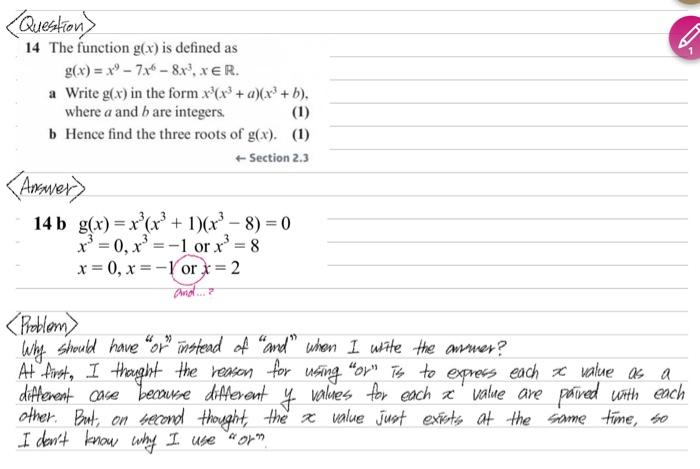 <Question>
14 The function g(x) is defined as
g(x) = x⁹ − 7x⁶ − 8x³, x ∈ ℝ.
a Write g(x) in the form x³(x³ + a)(x³ + b),
where a and b are integers. (1)
b Hence find the three roots of g(x). (1)
← Section 2.3
<Answer>
14 b g(x) = x³(x³ + 1)(x³ − 8) = 0
x³ = 0, x³ = −1 or x³ = 8
x = 0, x = −1 or x = 2
and...?
<Problem>
Why should have "or" instead of "and" when I write the answer?
At first, I thought the reason for using "or" is to express each x value as a
different case because different y values for each x value are paired with each
other. But, on second thought, the x value just exists at the same time, so
I don't know why I use "or".
1